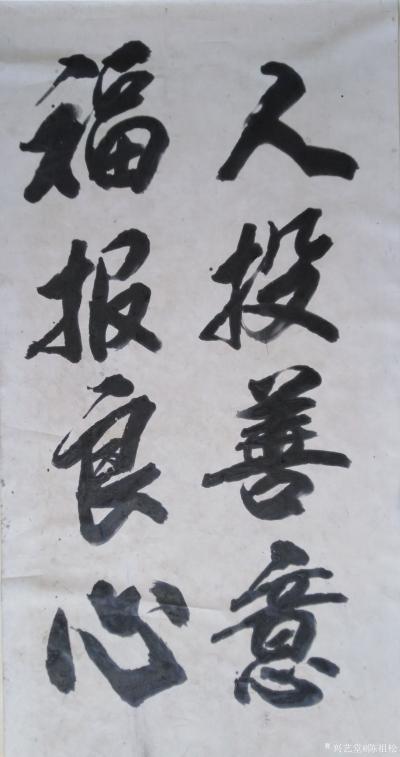 人投善意
福报良心
兴艺堂陈祖松